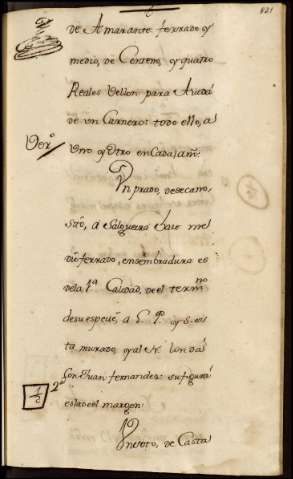 121
de Amarante ferrado, y
medio, de Centeno, y quatro
Reales Vellon para Aiuda
de un Carnero: todo ello, a
Uno y Otro en Cada año:
Un prado, de secano,
sito, a Salgueira Haze me
dio ferrado, en sembradura es
de la 1ª Calidad, de el termno
de su especie, a L. P. y S. es
ta murado, y al N. linda
Con Juan fernandez su figura
es la de el margen:
2ª
Un soto, de Casta